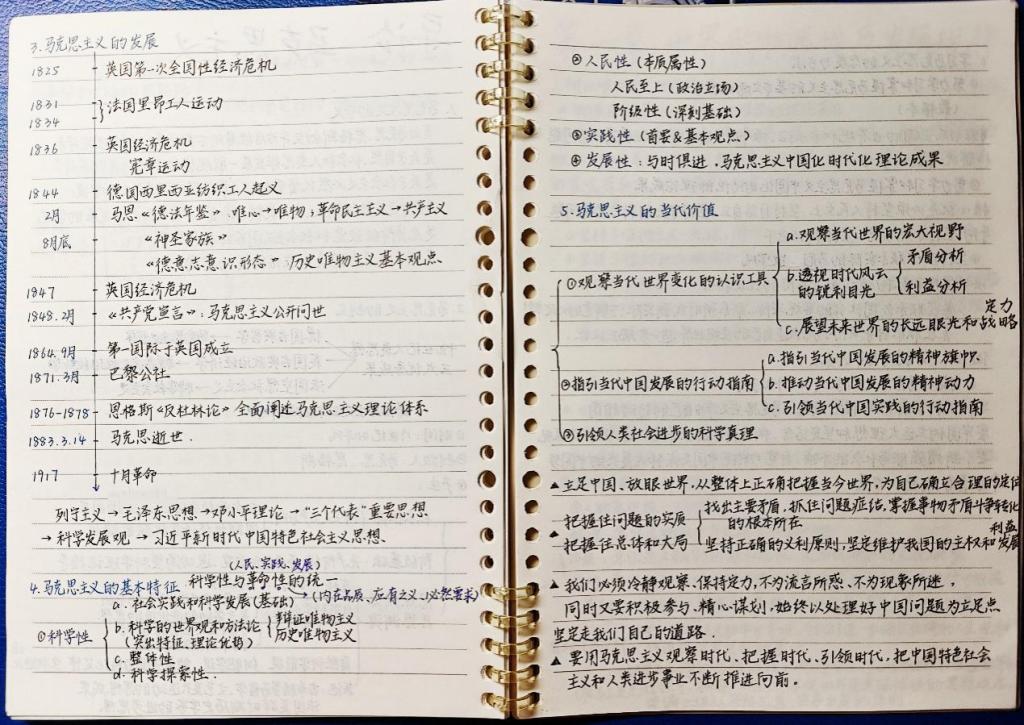 3.马克思主义的发展
1825 英国第一次全国性经济危机
1831
1834
法国里昂工人运动
1836 英国经济危机
宪章运动
1844 德国西里西亚纺织工人起义
2月 马恩《德法年鉴》.唯心→唯物;革命民主主义→共产主义
8月底 《神圣家族》
《德意志意识形态》 历史唯物主义基本观点
1847 英国经济危机
1848.2月 《共产党宣言》:马克思主义公开问世
1864.9月 第一国际于英国成立
1871.3月 巴黎公社
1876-1878 恩格斯《反杜林论》全面阐述马克思主义理论体系
1883.3.14 马克思逝世.
1917 十月革命
列宁主义→毛泽东思想→邓小平理论→“三个代表”重要思想
→科学发展观→习近平新时代中国特色社会主义思想.
(人民、实践、发展)
4.马克思主义的基本特征 科学性与革命性的统一
(内在品质、应有之义、必然要求)
①科学性
a.社会实践和科学发展(基础)
b.科学的世界观和方法论
(突出特征、理论优势)
辩证唯物主义
历史唯物主义
c.整体性
d.科学探索性.
②人民性(本质属性)
人民至上(政治立场)
阶级性(深刻基础)
③实践性(首要&基本观点)
④发展性:与时俱进,马克思主义中国化时代化理论成果
5.马克思主义的当代价值
①观察当代世界变化的认识工具
a.观察当代世界的宏大视野
b.透视时代风云
的锐利目光
矛盾分析
利益分析
定力
c.展望未来世界的长远眼光和战略
②指引当代中国发展的行动指南
a.指引当代中国发展的精神旗帜
b.推动当代中国发展的精神动力
c.引领当代中国实践的行动指南
③引领人类社会进步的科学真理
▲立足中国、放眼世界,从整体上正确把握当今世界,为自己确立合理的定位
一把握住问题的实质
找出主要矛盾,抓住问题症结,掌握事物矛盾斗争转化
的根本所在
利益
▲把握住总体和大局 坚持正确的义利原则,坚定维护我国的主权和发展
▲我们必须冷静观察、保持定力,不为流言所惑、不为现象所迷,
同时又要积极参与、精心谋划,始终以处理好中国问题为立足点
坚定走我们自己的道路.
▲要用马克思主义观察时代、把握时代、引领时代,把中国特色社会
主义和人类进步事业不断推进向前。